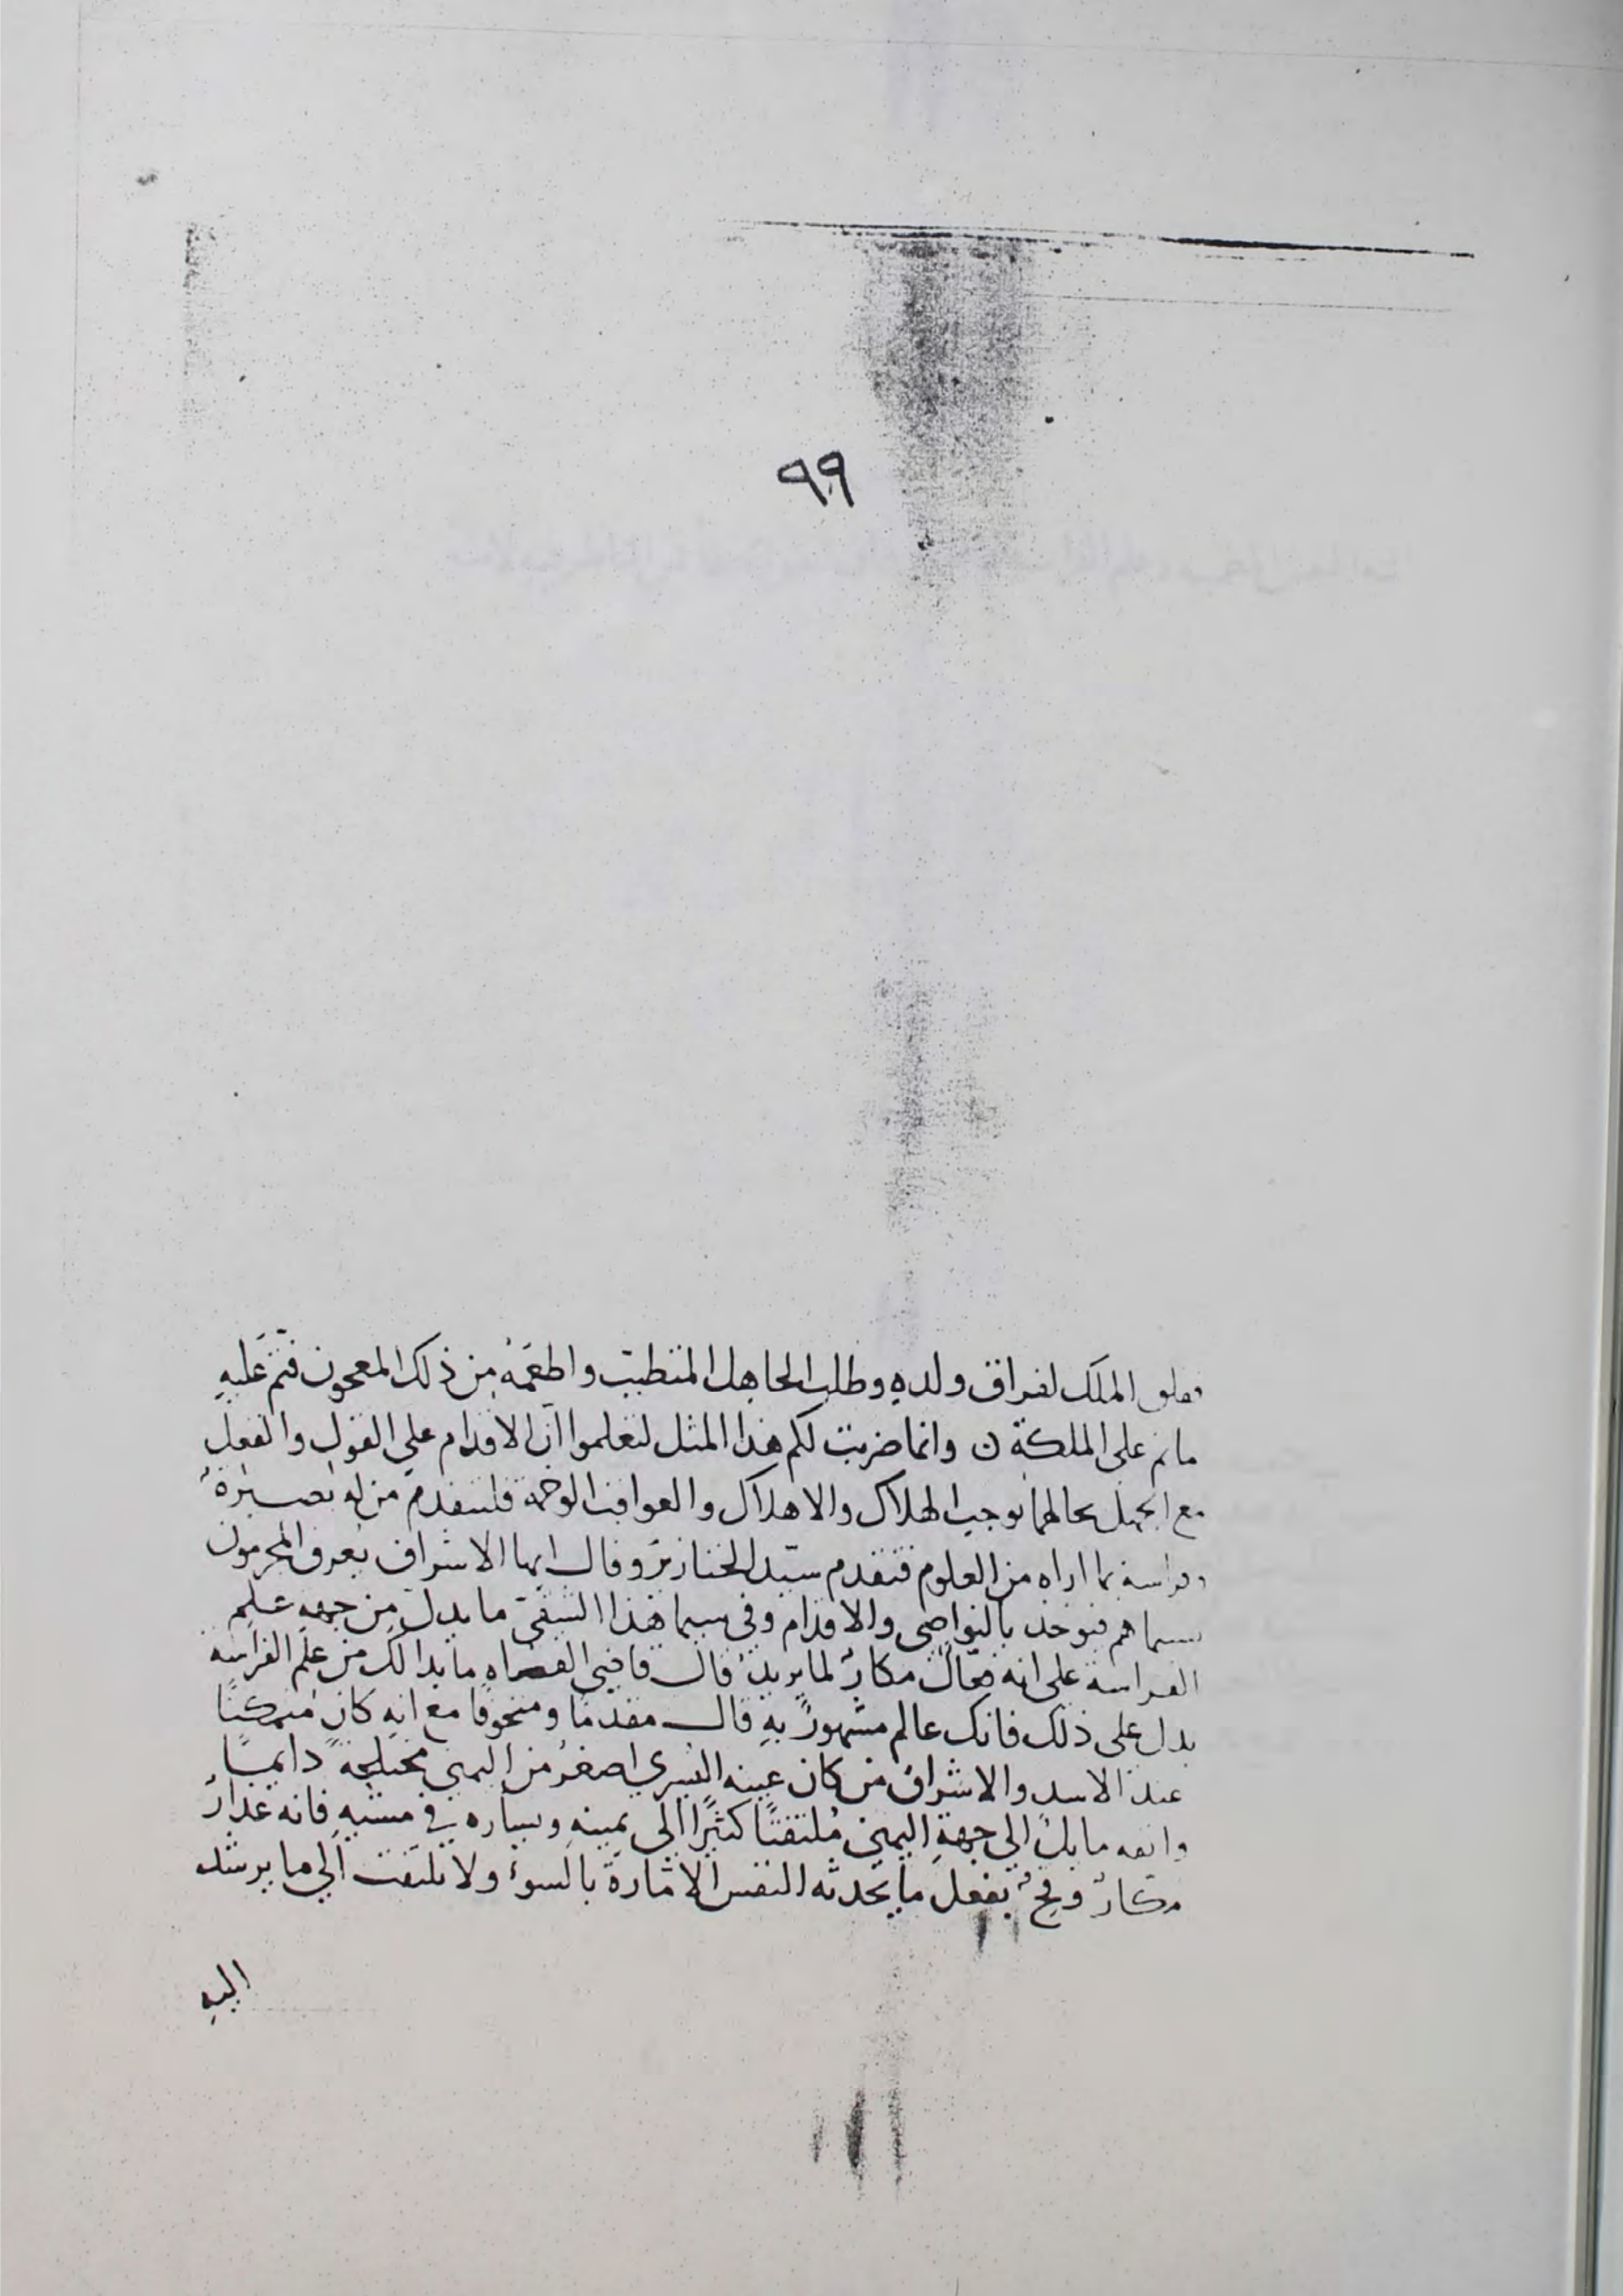 ٩٩
الملك لفراق ولده وطلب الجاهل المتطبب واطعمه من ذلك المعجون فتم عليه
ما تم على الملكة ن وانما ضربت لكم هذا المثل لتعلموا ان الاقدام على القول والفعل
مع الجهل بحالهما توجب الهلاك والاهلاك والعواقب الوخمة فليتقدم من له بصيرة
وفراسة بما اراه من العلوم فتقدم سيد الخنازير وقال ايها الاشراف يعرف المجرمون
بسيماهم فيوخذ بالنواصي والاقدام وفي سيما هذا الشقي ما يدل من جهة علم
الفراسة على انه فعّال مكار لما يريد قال قاضي القضاه ما بدا لك من علم الفراسه
يدل على ذلك فانك عالم مشهور به قال مقدما ومتخوفا مع انه كان متمكنا
عند الاسد والاشراف من كان عينه اليسري اصغر من اليمنى مختلجة دايما
وانفه مايل الى جهة اليمين ملتفتا كثيرا الى يمينه ويساره في مشيه فانه غدار
مكار وقح يفعل ما تحدثه النفس الامارة بالسوء ولا يلتفت الي ما يرشد
اليه